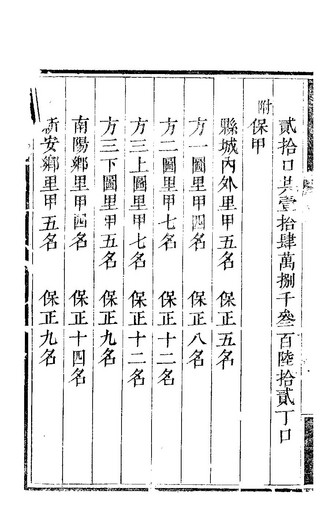 貳拾口共壹拾肆萬捌千叄百陸拾貳丁口
附保甲
縣城內外里甲五名 保正五名
方一圖里甲四名 保正八名
方二圖里甲七名 保正十二名
方三上圖里甲七名 保正十二名
方三下圖里甲五名 保正九名
南陽鄉里甲四名 保正十四名
新安鄉里甲五名 保正九名